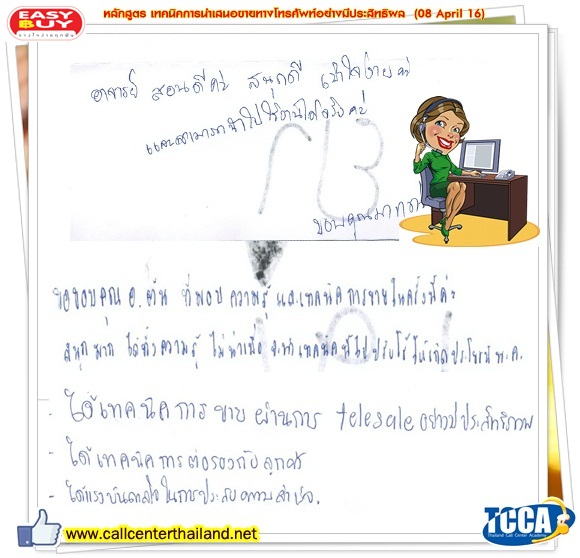 EASY BUY
หลักสูตร เทคนิคการนำเสนอขายทางโทรศัพท์อย่างมีประสิทธิพล (08 April 16)
อาจารย์ สอนดีค่ะ สนุกดี เข้าใจง่ายค่ะ
และสามารถนำไปใช้งานได้จริงค่ะ
ขอบคุณมาก
ขอขอบคุณ อ. ที่มอบความรู้ และเทคนิคการขายในครั้งนี้ค่ะ
สนุกมาก ได้ทั้งความรู้ ไม่น่าเบื่อ จะนำเทคนิคนี้ไปปรับใช้ให้เกิดประโยชน์ค่ะ
- ได้เทคนิคการขายผ่านการ telesale อย่างมีประสิทธิภาพ
- ได้เทคนิคการต่อรองกับลูกค้า
- ได้แรงบันดาลใจในการประสบความสำเร็จ.
www.callcenterthailand.net
TCCA
Thailand Call Center Academy